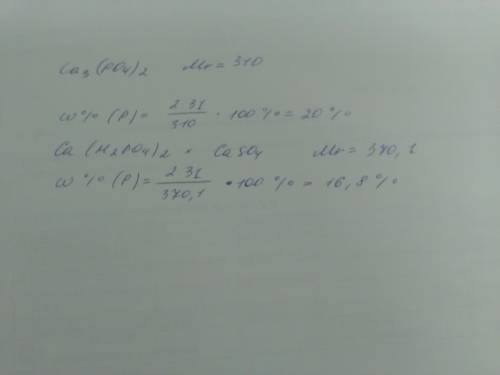 Ca3(PO4)2 Mr = 310
w%(P) = 2 31 / 310 · 100% = 20%
Ca(H2PO4)2 × CaSO4 Mr = 370,1
w%(P) = 2 31 / 370,1 · 100% = 16,8%